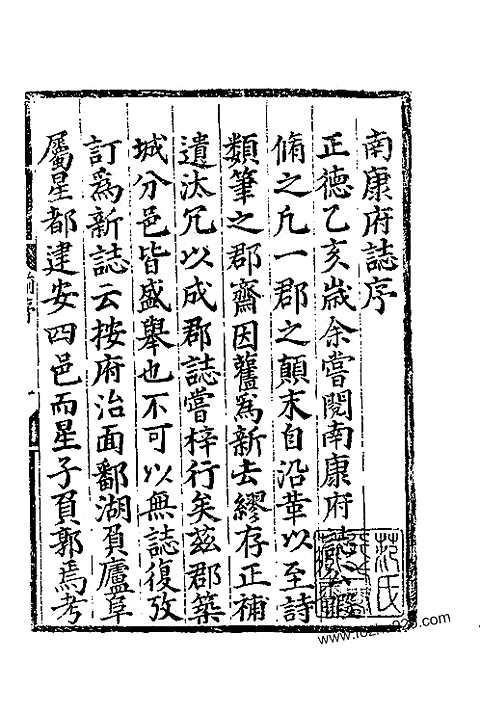 南康府誌序
正德乙亥歳余嘗閱南康府誌
脩之凡一郡之顛末自沿革以至詩
類筆之郡齋因舊爲新去繆存正補
遺汰冗以成郡誌嘗梓行矣茲郡築
城分邑皆盛舉也不可以無誌復攷
訂爲新誌云按府治面鄱湖負廬阜
屬星都建安四邑而星子負郭焉考
前序
范氏